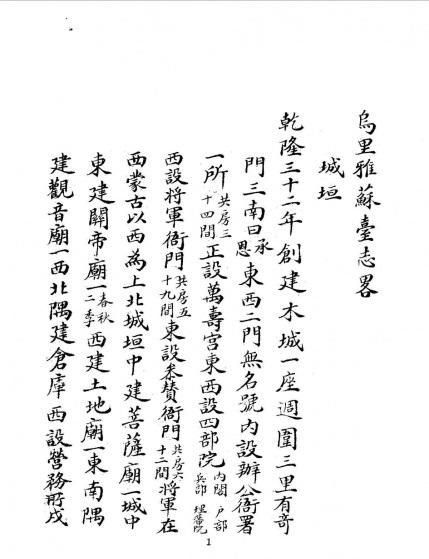 烏里雅蘇臺志畧
城垣
乾隆三十二年創建木城一座週圍三里有奇
門三南曰承恩東西二門無名號内設辦公衙署
一所共房三十四間正設萬壽宮東西設四部院内閣戶部兵部理藩院
西設將軍衙門共房五十九間東設叅贊衙門共房六十二間將軍在
西蒙古以西為上北城垣中建菩薩廟一城中
東建關帝廟一春秋二季西建土地廟一東南隅
建觀音廟一西北隅建倉庫西設營務所戌
1